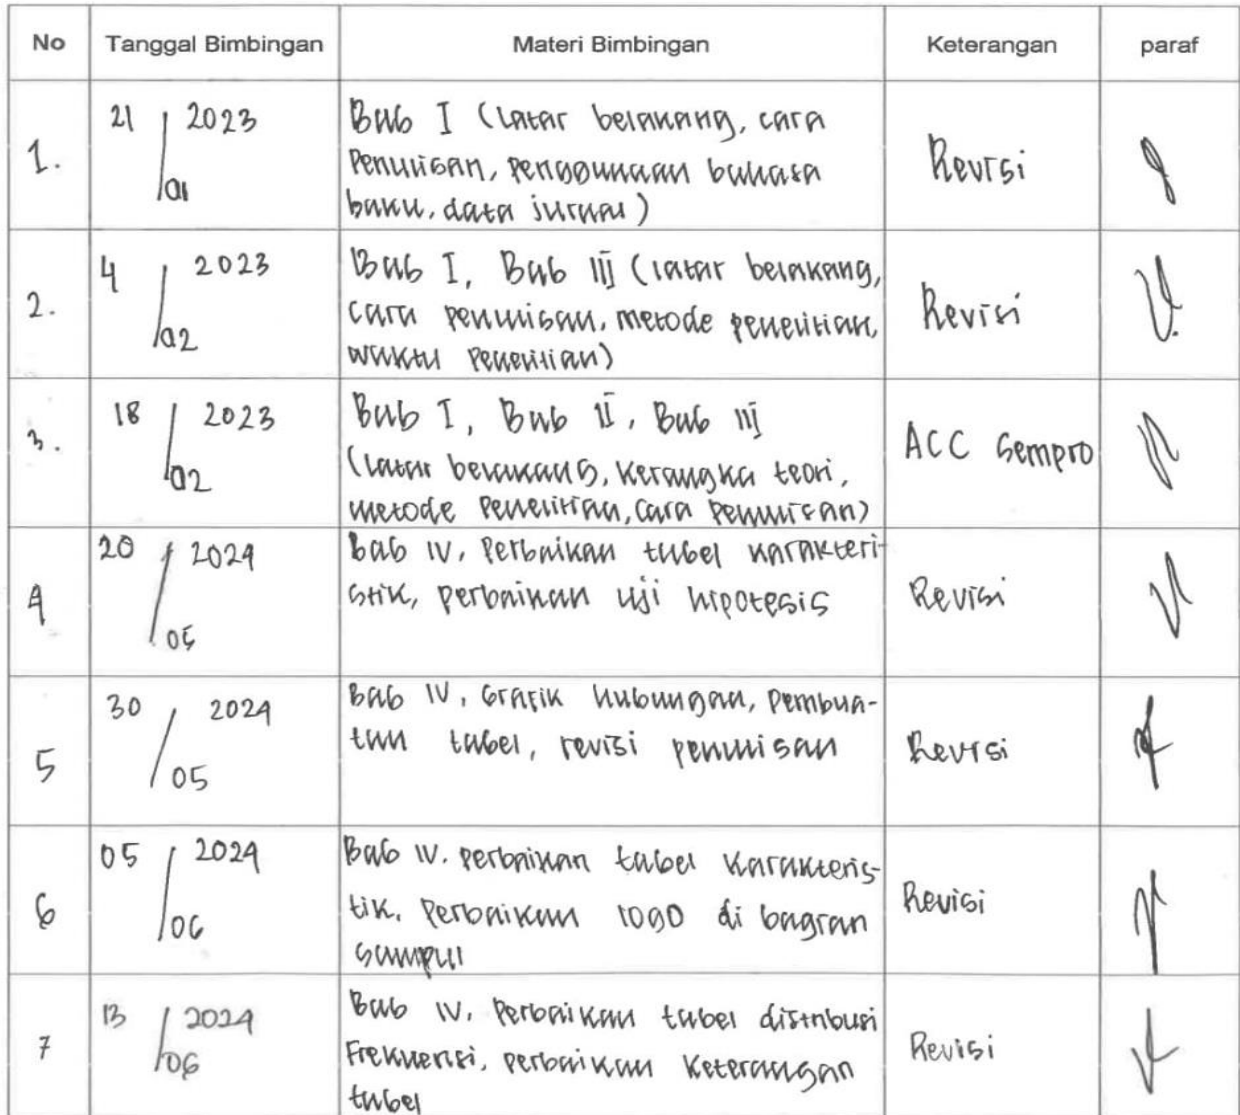 No Tanggal Bimbingan Materi Bimbingan Keterangan paraf
1. 21/01 2023 Bab I (Latar belakang, cara
Penulisan, Penggunaan bahasa
baku, data jurnal) Revisi
2. 4/02 2023 Bab I, Bab III (latar belakang,
cara penulisan, metode penelitian,
waktu penelitian) Revisi
3. 18/02 2023 Bab I, Bab II, Bab III
(Latar belakang, Kerangka teori,
metode Penelitian, Cara Penulisan) ACC Sempro
4 20/05 2024 Bab IV, Perbaikan tabel karakteri-
stik, perbaikan uji hipotesis Revisi
5 30/05 2024 Bab IV, Grafik hubungan, Pembua-
tan tabel, revisi penulisan Revisi
6 05/06 2024 Bab IV. perbaikan tabel Karakteris-
tik, Perbaikan logo di bagian
Sampul Revisi
7 13/06 2024 Bab IV, Perbaikan tabel distribusi
Frekuensi, perbaikan Keterangan
tabel Revisi